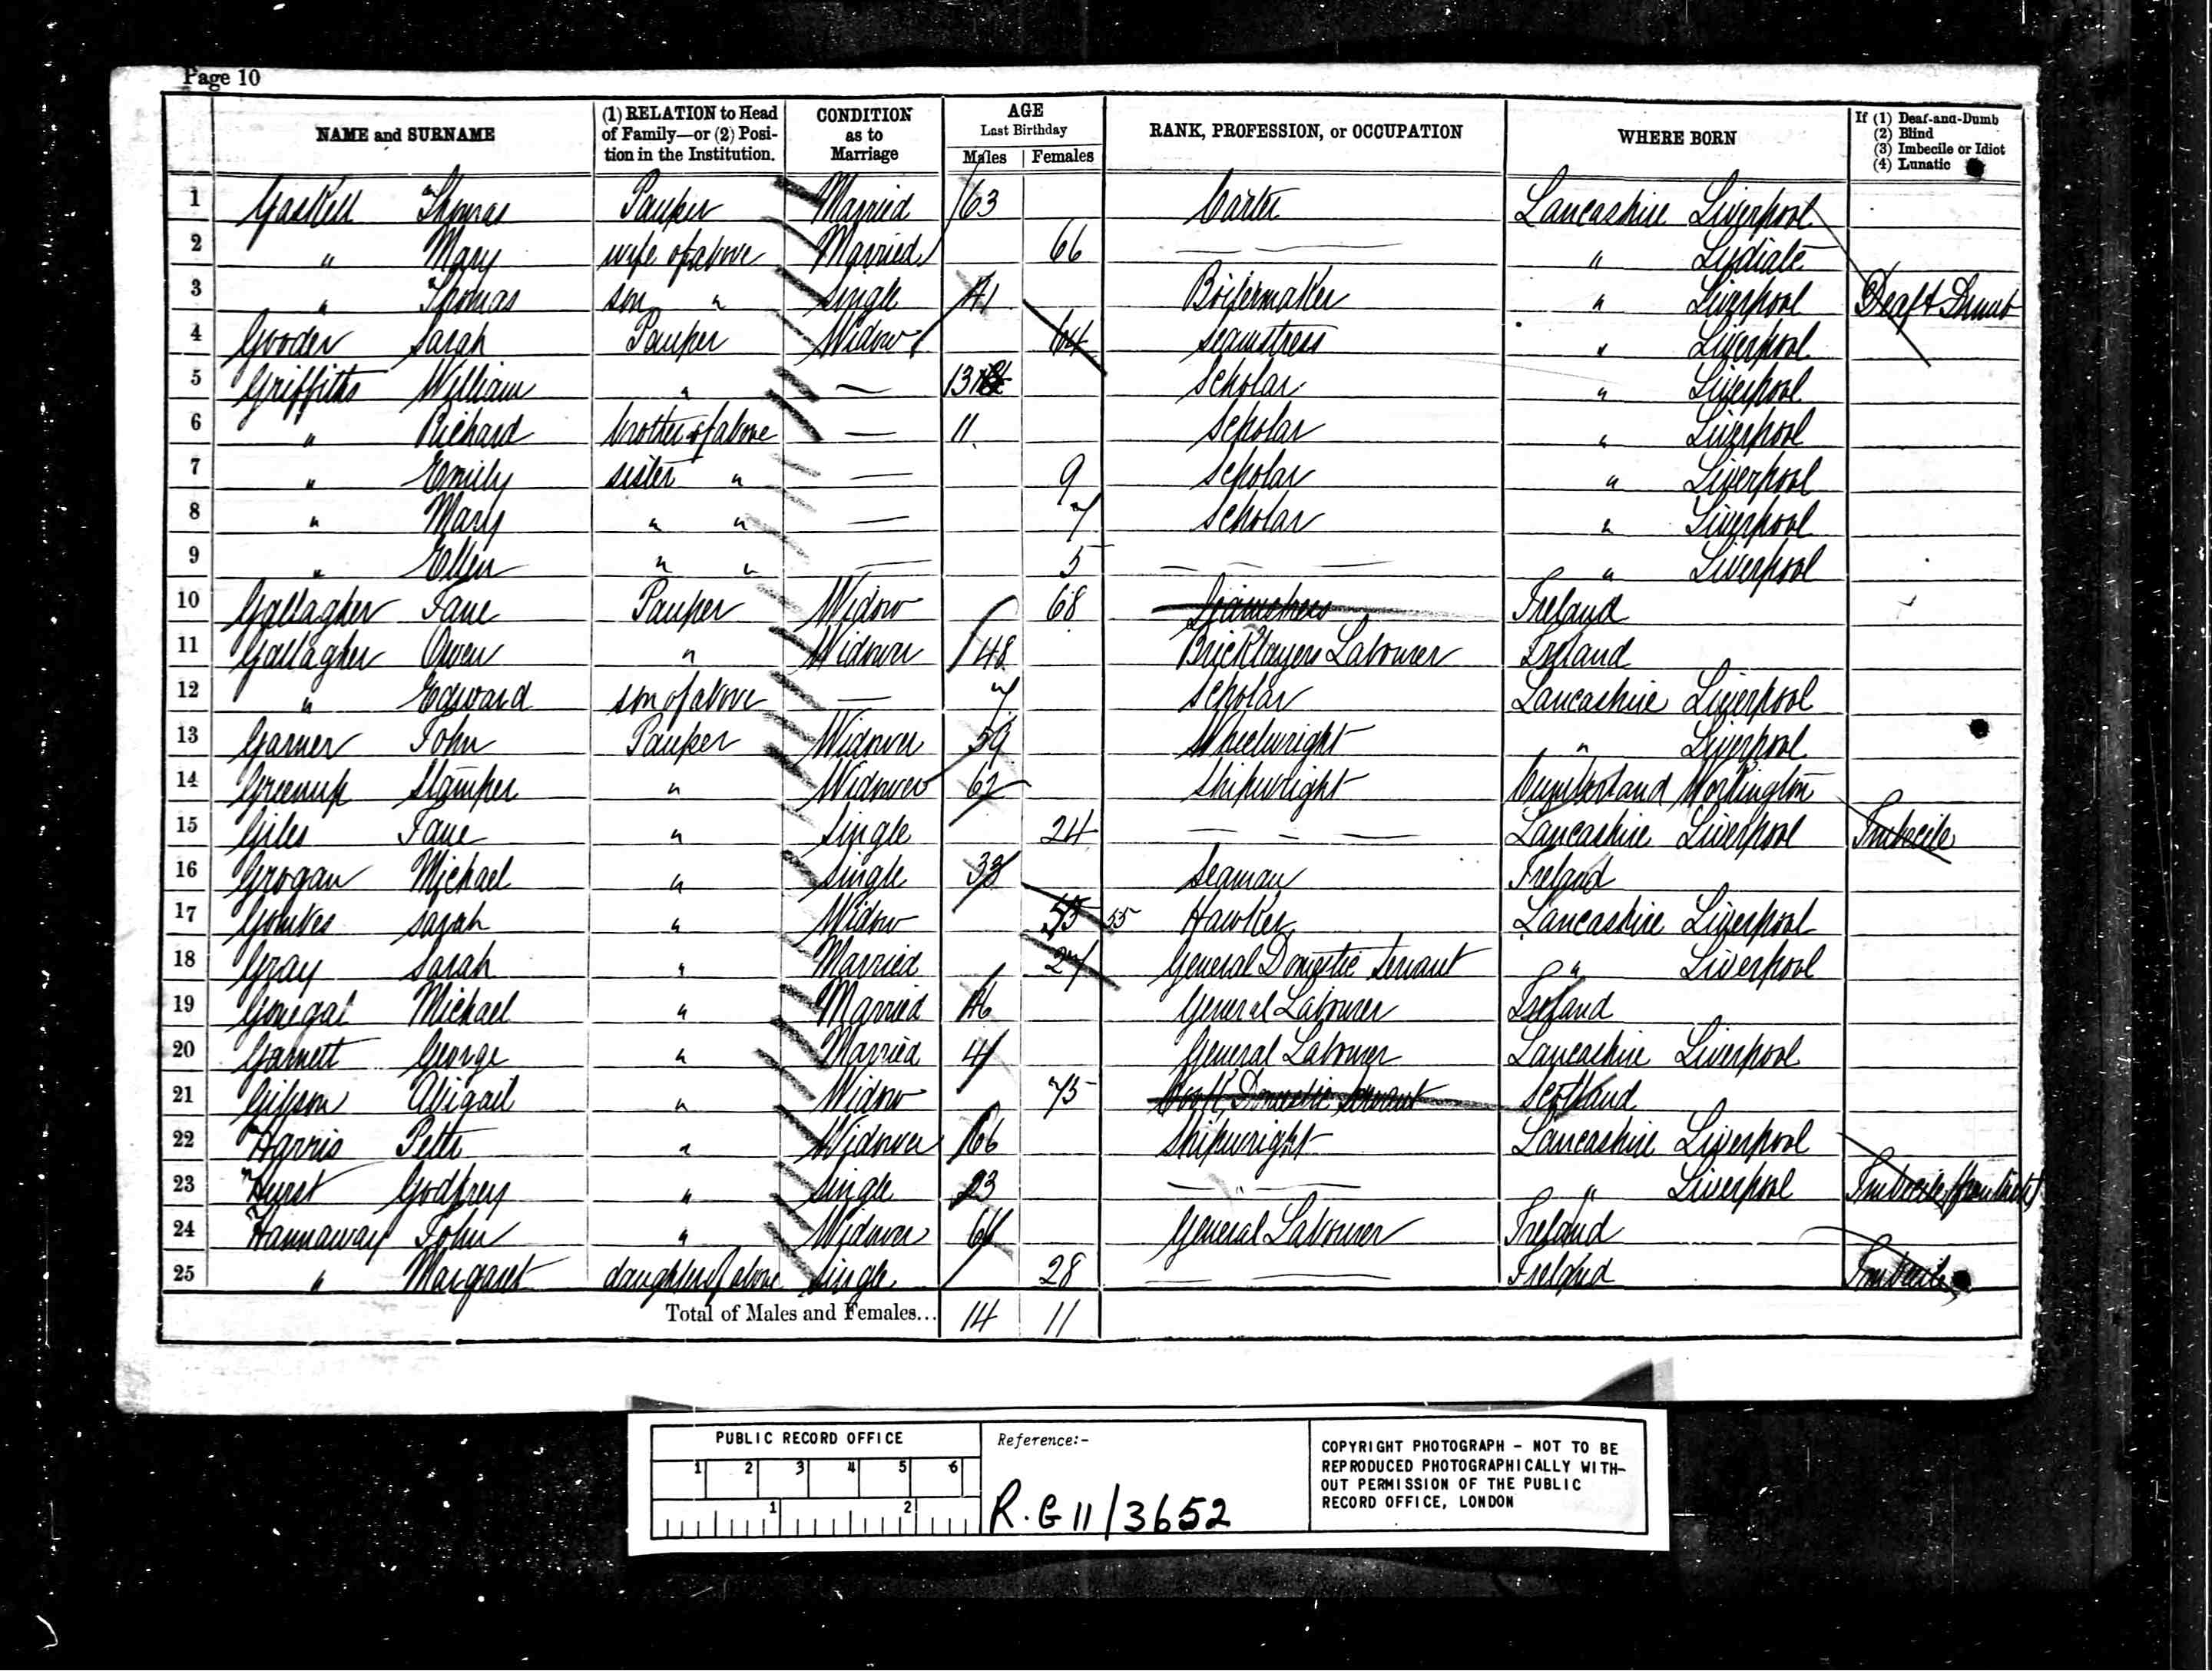 Page 10
NAME and SURNAME (1) RELATION to Head of Family—or (2) Position in the Institution. CONDITION as to Marriage AGE Last Birthday Males Females RANK, PROFESSION, or OCCUPATION WHERE BORN If (1) Deaf-and-Dumb (2) Blind (3) Imbecile or Idiot (4) Lunatic
1 Gaskell Thomas Pauper Married 63 Carter Lancashire Liverpool
2 " Mary wife of above Married 66 " Lydiate
3 " Thomas son " Single 41 Boilermaker " Liverpool Deaf & Dumb
4 Gooder Sarah Pauper Widow 64 Seamstress " Liverpool
5 Griffiths William " — 13 Scholar " Liverpool
6 " Richard brother of above — 11 Scholar " Liverpool
7 " Emily sister " — 9 Scholar " Liverpool
8 " Mary " " — 7 Scholar " Liverpool
9 " Ellen " " — 5 " Liverpool
10 Gallagher Jane Pauper Widow 68 Seamstress Ireland
11 Gallagher Owen " Widower 48 Bricklayers Labourer Ireland
12 " Edward son of above — 7 Scholar Lancashire Liverpool
13 Garner John Pauper Widower 59 Wheelwright " Liverpool
14 Greenup Stamper " Widower 62 Shipwright Cumberland Workington
15 Giles Jane " Single 24 Lancashire Liverpool Imbecile
16 Grogan Michael " Single 33 Seaman Ireland
17 Sarah " Widow 55 55 Hawker Lancashire Liverpool
18 Gray Sarah " Married 27 General Domestic Servant " Liverpool
19 Gonegal Michael " Married 46 General Labourer Ireland
20 Garnett George " Married 41 General Labourer Lancashire Liverpool
21 Gibson Abigail " Widow 75 Cook, Domestic Servant Scotland
22 Harris Peter " Widower 66 Shipwright Lancashire Liverpool
23 Hurst Godfrey " Single 23 " Liverpool Imbecile
24 Hannaway John " Widower General Labourer Ireland
25 " Margaret daughter of above Single 28 Ireland Imbecile
Total of Males and Females... 14 11
PUBLIC RECORD OFFICE
1 2 3 4 5 6
1 2
Reference:-
R.G 11/3652
COPYRIGHT PHOTOGRAPH - NOT TO BE
REPRODUCED PHOTOGRAPHICALLY WITH-
OUT PERMISSION OF THE PUBLIC
RECORD OFFICE, LONDON